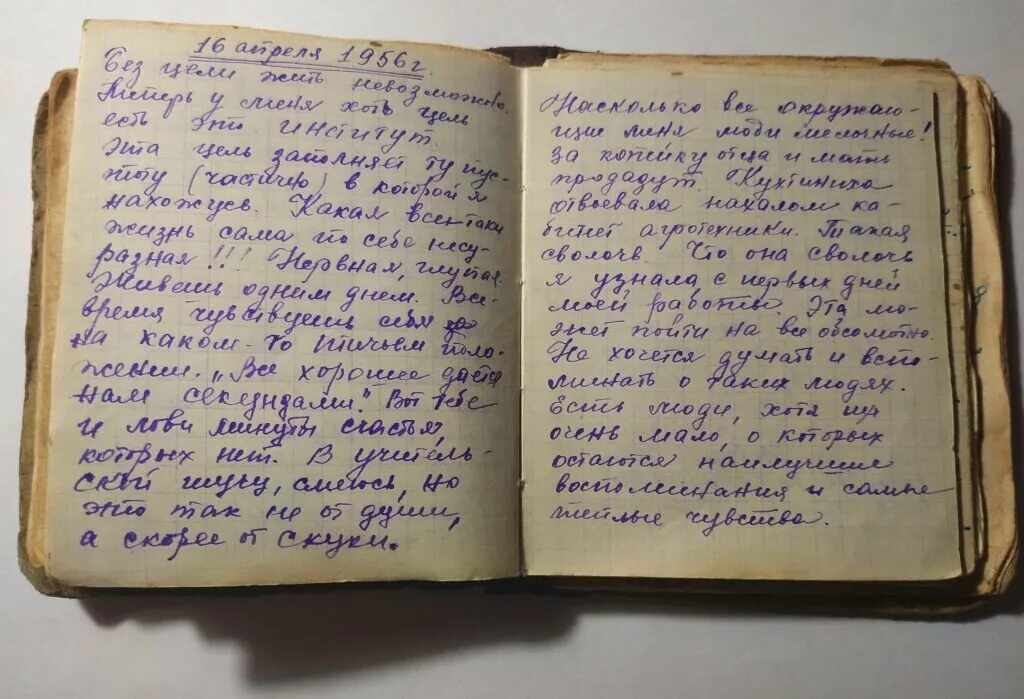 16 апреля 1956 г.
Без цели жить невозможно.
Теперь у меня хоть цель
есть это институт.
Эта цель заполняет ту пус-
тоту (частично) в которой я
нахожусь. Какая всё-таки
жизнь сама по себе несу-
разная!!! Нервная, глупая.
Живёшь одним днём. Все
время чувствуешь себя
на каком-то птичьем поло-
жении. „Все хорошее дается
нам секундами". Вот тебе
и лови минуты счастья,
которых нет. В учитель-
ской шучу, смеюсь, но
это так не от души,
а скорее от скуки.
Насколько все окружаю-
щие меня люди мелочные!
За копейку отца и мать
продадут. Кухтиниха
отвоевала нахалом ка-
бинет агротехники. Такая
сволочь. Что она сволочь
я узнала с первых дней
моей работы. Эта мо-
жет пойти на все абсолютно.
Не хочется думать и вспо-
минать о таких людях.
Есть люди, хотя их
очень мало, о которых
остаются наилучшие
воспоминания и самые
тёплые чувства.